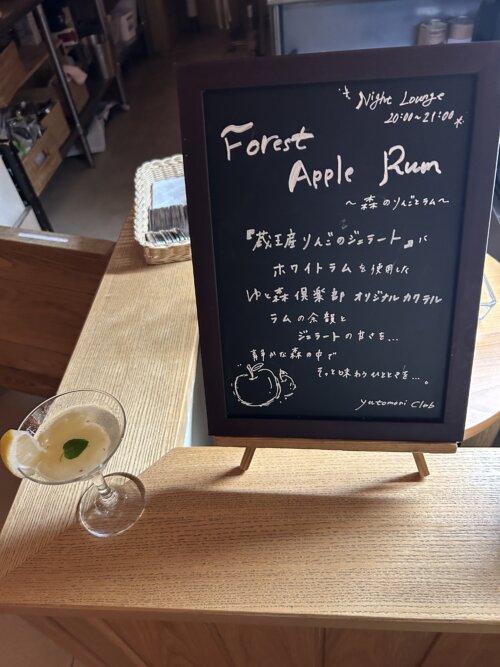 Night Lounge
20:00~21:00
Forest
Apple Rum
~森のりんごとラム~
『蔵王産りんごのジェラート』に
ホワイトラムを使用した
ゆと森倶楽部 オリジナルカクテル
ラムの余韻と
ジェラートの甘さを...
静かな森の中で
そっと味わうひとときを...。
yutomori Club